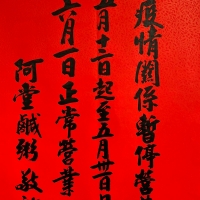 疫情關係暫停營
五月十二日起至五月卅日
六月一日正常營業
阿堂鹹粥敬